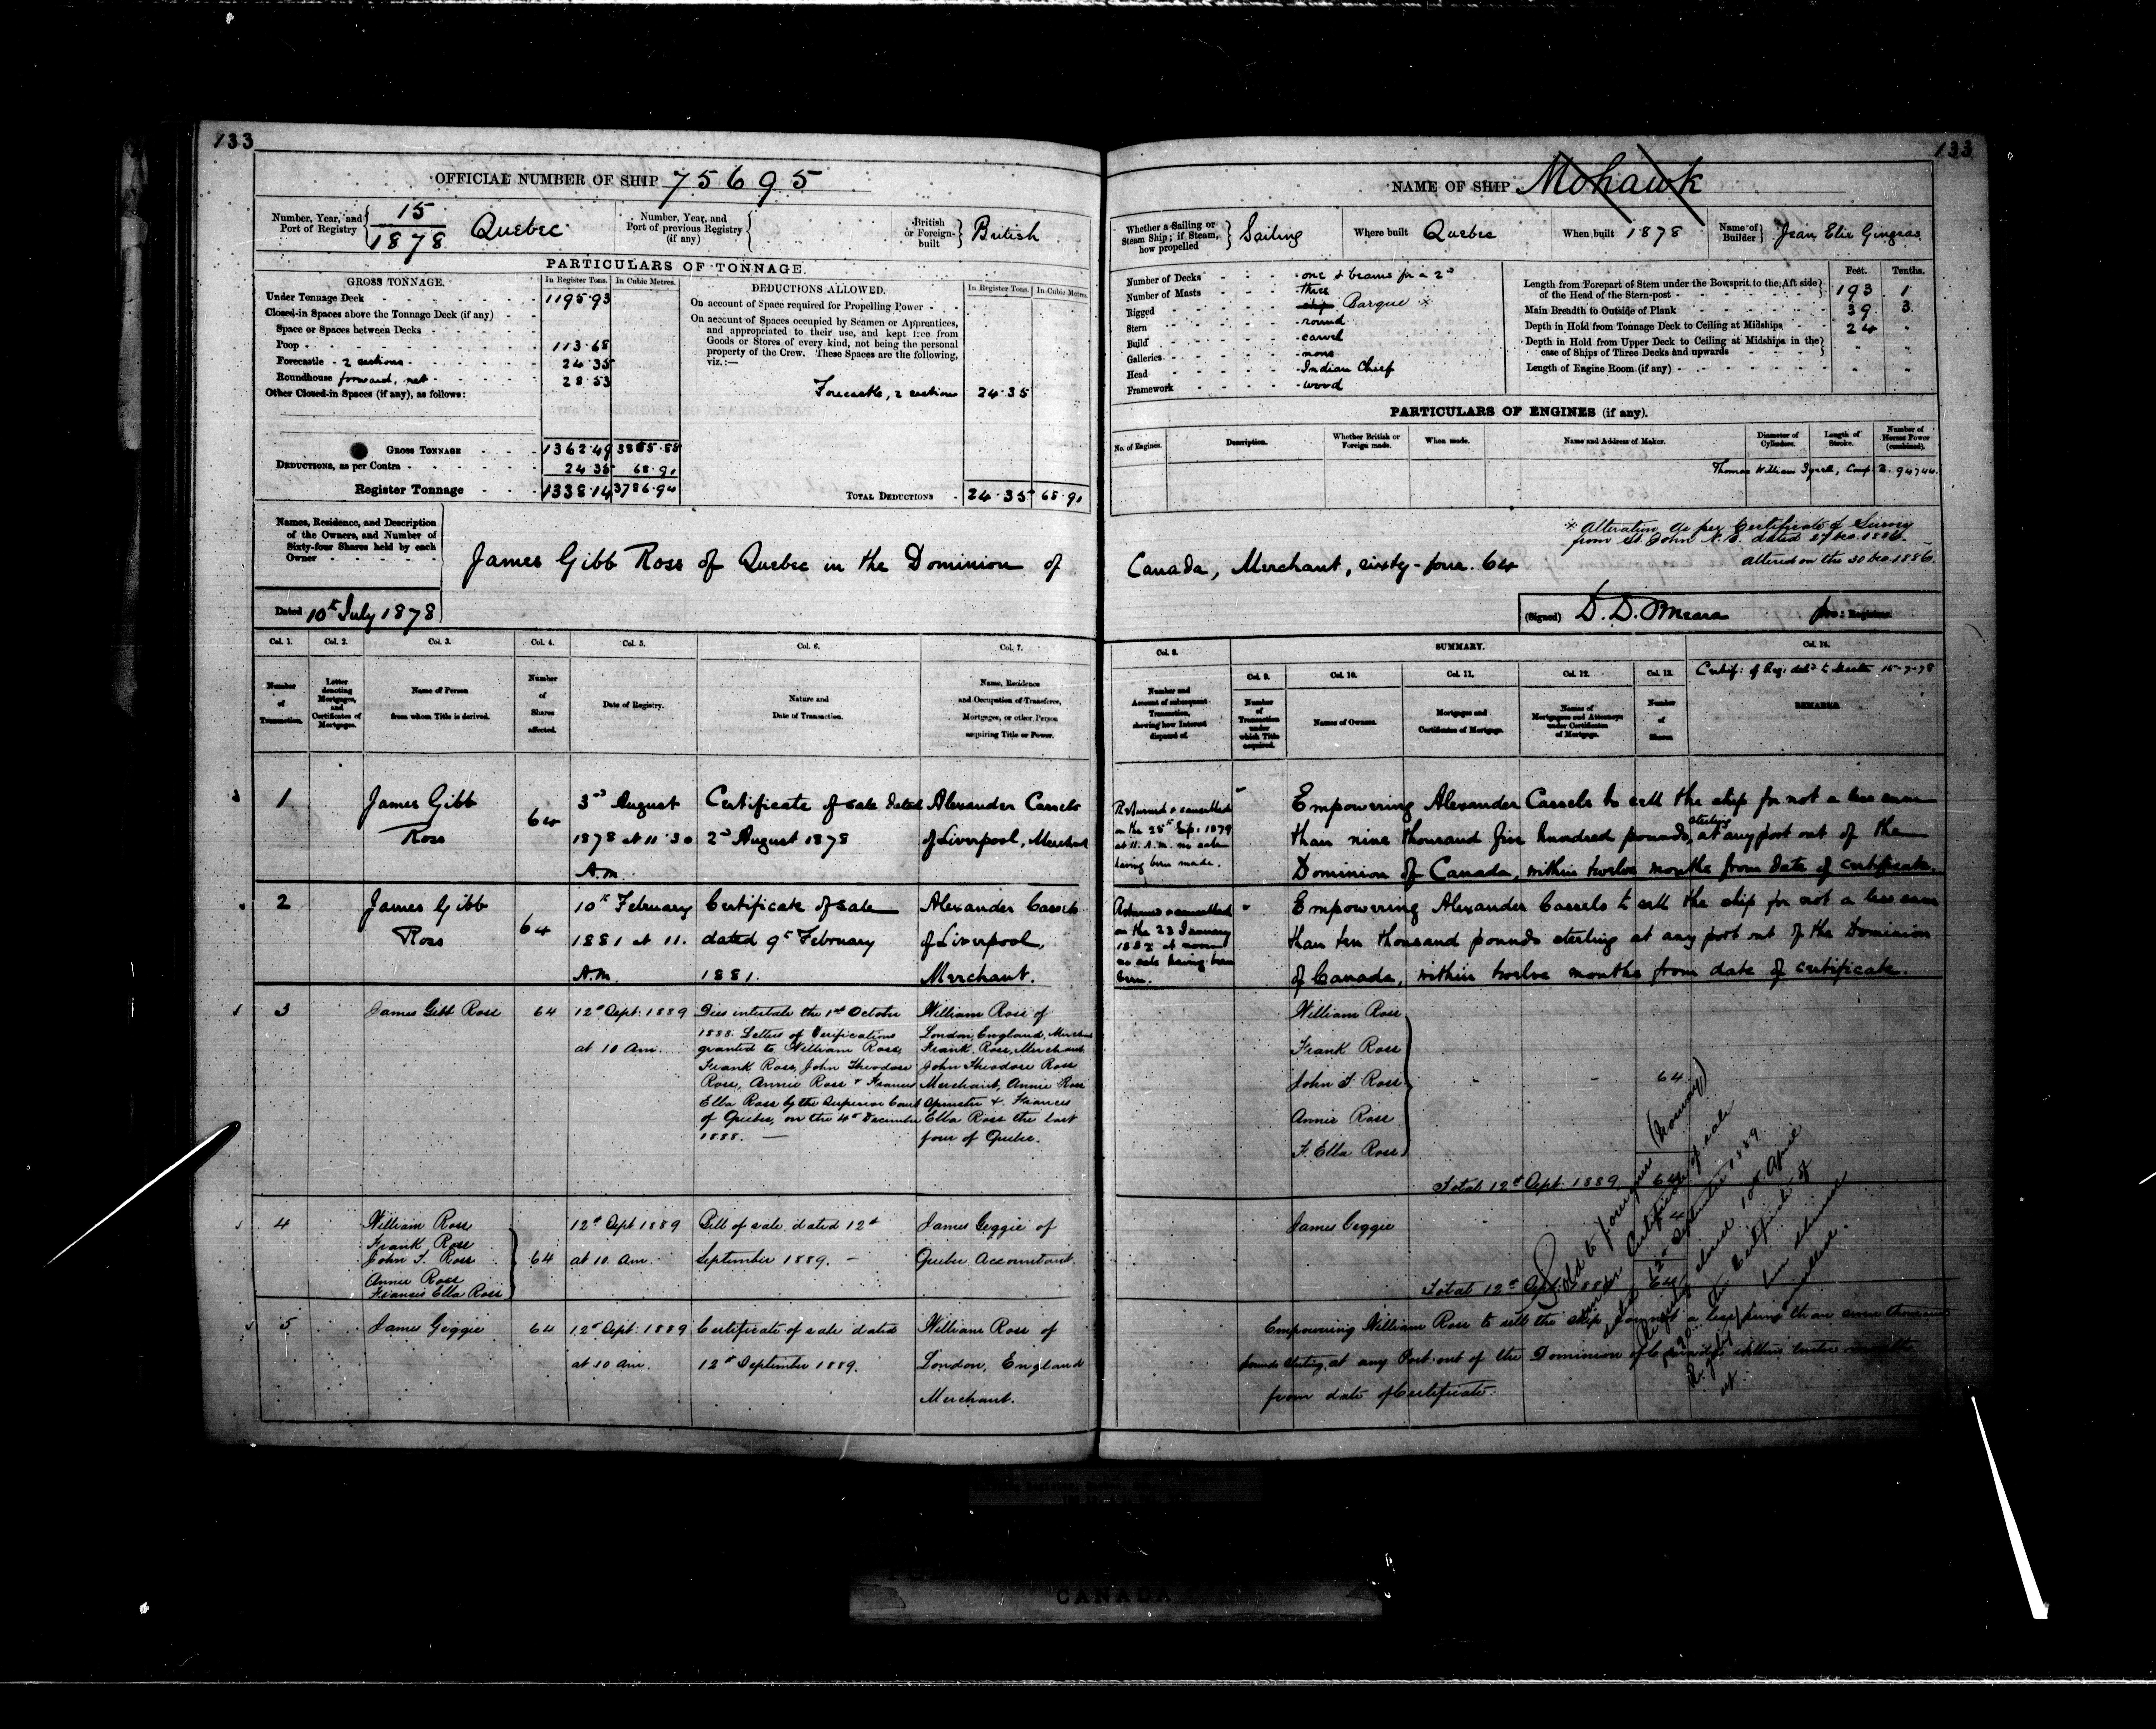 133
OFFICIAL NUMBER OF SHIP 75695
Number, Year, and Port of Registry 15 / 1878 Quebec
Number, Year, and Port of previous Registry (if any)
British or Foreign-built British
PARTICULARS OF TONNAGE.
GROSS TONNAGE. In Register Tons. In Cubic Metres.
Under Tonnage Deck 1195.93
Closed-in Spaces above the Tonnage Deck (if any)
Space or Spaces between Decks
Poop 113.68
Forecastle - 2 sections 24.35
Roundhouse forward, net 28.53
Other Closed-in Spaces (if any), as follows:
GROSS TONNAGE 1362.49 3855.85
DEDUCTIONS, as per Contra 24.35 68.91
Register Tonnage 1338.14 3786.94
DEDUCTIONS ALLOWED. In Register Tons. In Cubic Metres.
On account of Space required for Propelling Power
On account of Spaces occupied by Seamen or Apprentices,
and appropriated to their use, and kept free from
Goods or Stores of every kind, not being the personal
property of the Crew. These Spaces are the following,
viz.:—
Forecastle, 2 sections 24.35
TOTAL DEDUCTIONS 24.35 68.91
Names, Residence, and Description
of the Owners, and Number of
Sixty-four Shares held by each
Owner
James Gibb Ross of Quebec in the Dominion of
Dated 10th July 1878
Col. 1. Col. 2. Col. 3. Col. 4. Col. 5. Col. 6. Col. 7.
Number of Transaction.
Letter denoting Mortgages, and Certificates of Mortgages.
Name of Person from whom Title is derived.
Number of Shares affected.
Date of Registry.
Nature and Date of Transaction.
Name, Residence and Occupation of Transferee, Mortgagee, or other Person acquiring Title or Power.
1 James Gibb Ross 64
3rd August 1878 at 11.30 A.m.
Certificate of sale dated 2nd August 1878
Alexander Cassels of Liverpool, Merchant
2 James Gibb Ross 64
10th February 1881 at 11. A.m.
Certificate of sale dated 9th February 1881.
Alexander Cassels of Liverpool, Merchant.
3 James Gibb Ross 64
12th Sept: 1889 at 10 Am.
Dies intestate the 1st October
1888. Letters of Verifications
granted to William Ross,
Frank Ross, John Theodore
Ross, Annie Ross & Frances
Ella Ross by the Superior Court
of Quebec, on the 4th December
1888.
William Ross of
London, England, Merchant
Frank Ross, Merchant
John Theodore Ross
Merchant, Annie Ross
Spinster & Frances
Ella Ross the last
four of Quebec.
4 William Ross
Frank Ross
John T. Ross
Annie Ross
Frances Ella Ross
64
12th Sept 1889 at 10 Am.
Bill of sale dated 12th September 1889.
James Geggie of Quebec Accountant
5 James Geggie 64
12th Sept: 1889 at 10 Am.
Certificate of sale dated 12th September 1889.
William Ross of London, England Merchant.
133
NAME OF SHIP Mohawk
Whether a Sailing or Steam Ship; if Steam, how propelled Sailing
Where built Quebec
When built 1878
Name of Builder Jean Elie Gingras
Number of Decks one & beams for a 2nd
Number of Masts three
Rigged ship Barque *
Stern round
Build carvel
Galleries none
Head Indian Chief
Framework wood
Feet. Tenths.
Length from Forepart of Stem under the Bowsprit to the Aft side of the Head of the Stern-post 193 1
Main Breadth to Outside of Plank 39 3
Depth in Hold from Tonnage Deck to Ceiling at Midships 24 "
Depth in Hold from Upper Deck to Ceiling at Midships in the case of Ships of Three Decks and upwards " "
Length of Engine Room (if any) " "
PARTICULARS OF ENGINES (if any).
No. of Engines. Description. Whether British or Foreign made. When made. Name and Address of Maker. Diameter of Cylinders. Length of Stroke. Number of Horses Power (combined).
Thomas William
* Alteration as per Certificate of Survey
from St. John N.B. dated 27 Dec. 1886.
altered on the 30 Dec. 1886.
Canada, Merchant, sixty-four. 64
(Signed) D. D. O'Meara Registrar.
Col. 8. SUMMARY. Col. 14.
Col. 9. Col. 10. Col. 11. Col. 12. Col. 13.
Number and Account of subsequent Transaction, showing how Interest disposed of.
Number of Transaction under which Title acquired.
Names of Owners.
Mortgages and Certificates of Mortgage.
Names of Mortgagees and Attorneys under Certificates of Mortgage.
Number of Shares
Certif: of Reg: deld to Master 15-7-78
REMARKS.
Returned & cancelled
on the 25th Sep: 1879
at 11. A.M. no sale
having been made.
Empowering Alexander Cassels to sell the ship for not a less sum
than nine thousand five hundred pounds, sterling at any port out of the
Dominion of Canada, within twelve months from date of certificate.
Returned & cancelled
on the 23 January
1882 at noon
no sale having been
Empowering Alexander Cassels to sell the ship for not a less sum
than ten thousand pounds sterling at any port out of the Dominion
of Canada, within twelve months from date of certificate.
William Ross
Frank Ross
John T. Ross 64
Annie Ross
F. Ella Ross
Total 12th Sept. 1889 64
James Geggie
Total 12th Sept. 1889 64
Empowering William Ross to sell the ship for not a less sum than seven thousand
pounds sterling, at any Port out of the Dominion of Canada within twelve months
from date of Certificate.
Sold to foreigners (Norway)
under Certificate of sale
dated 12th September 1889.
Registry closed 10th April
1890. The Certificate of
CANADA